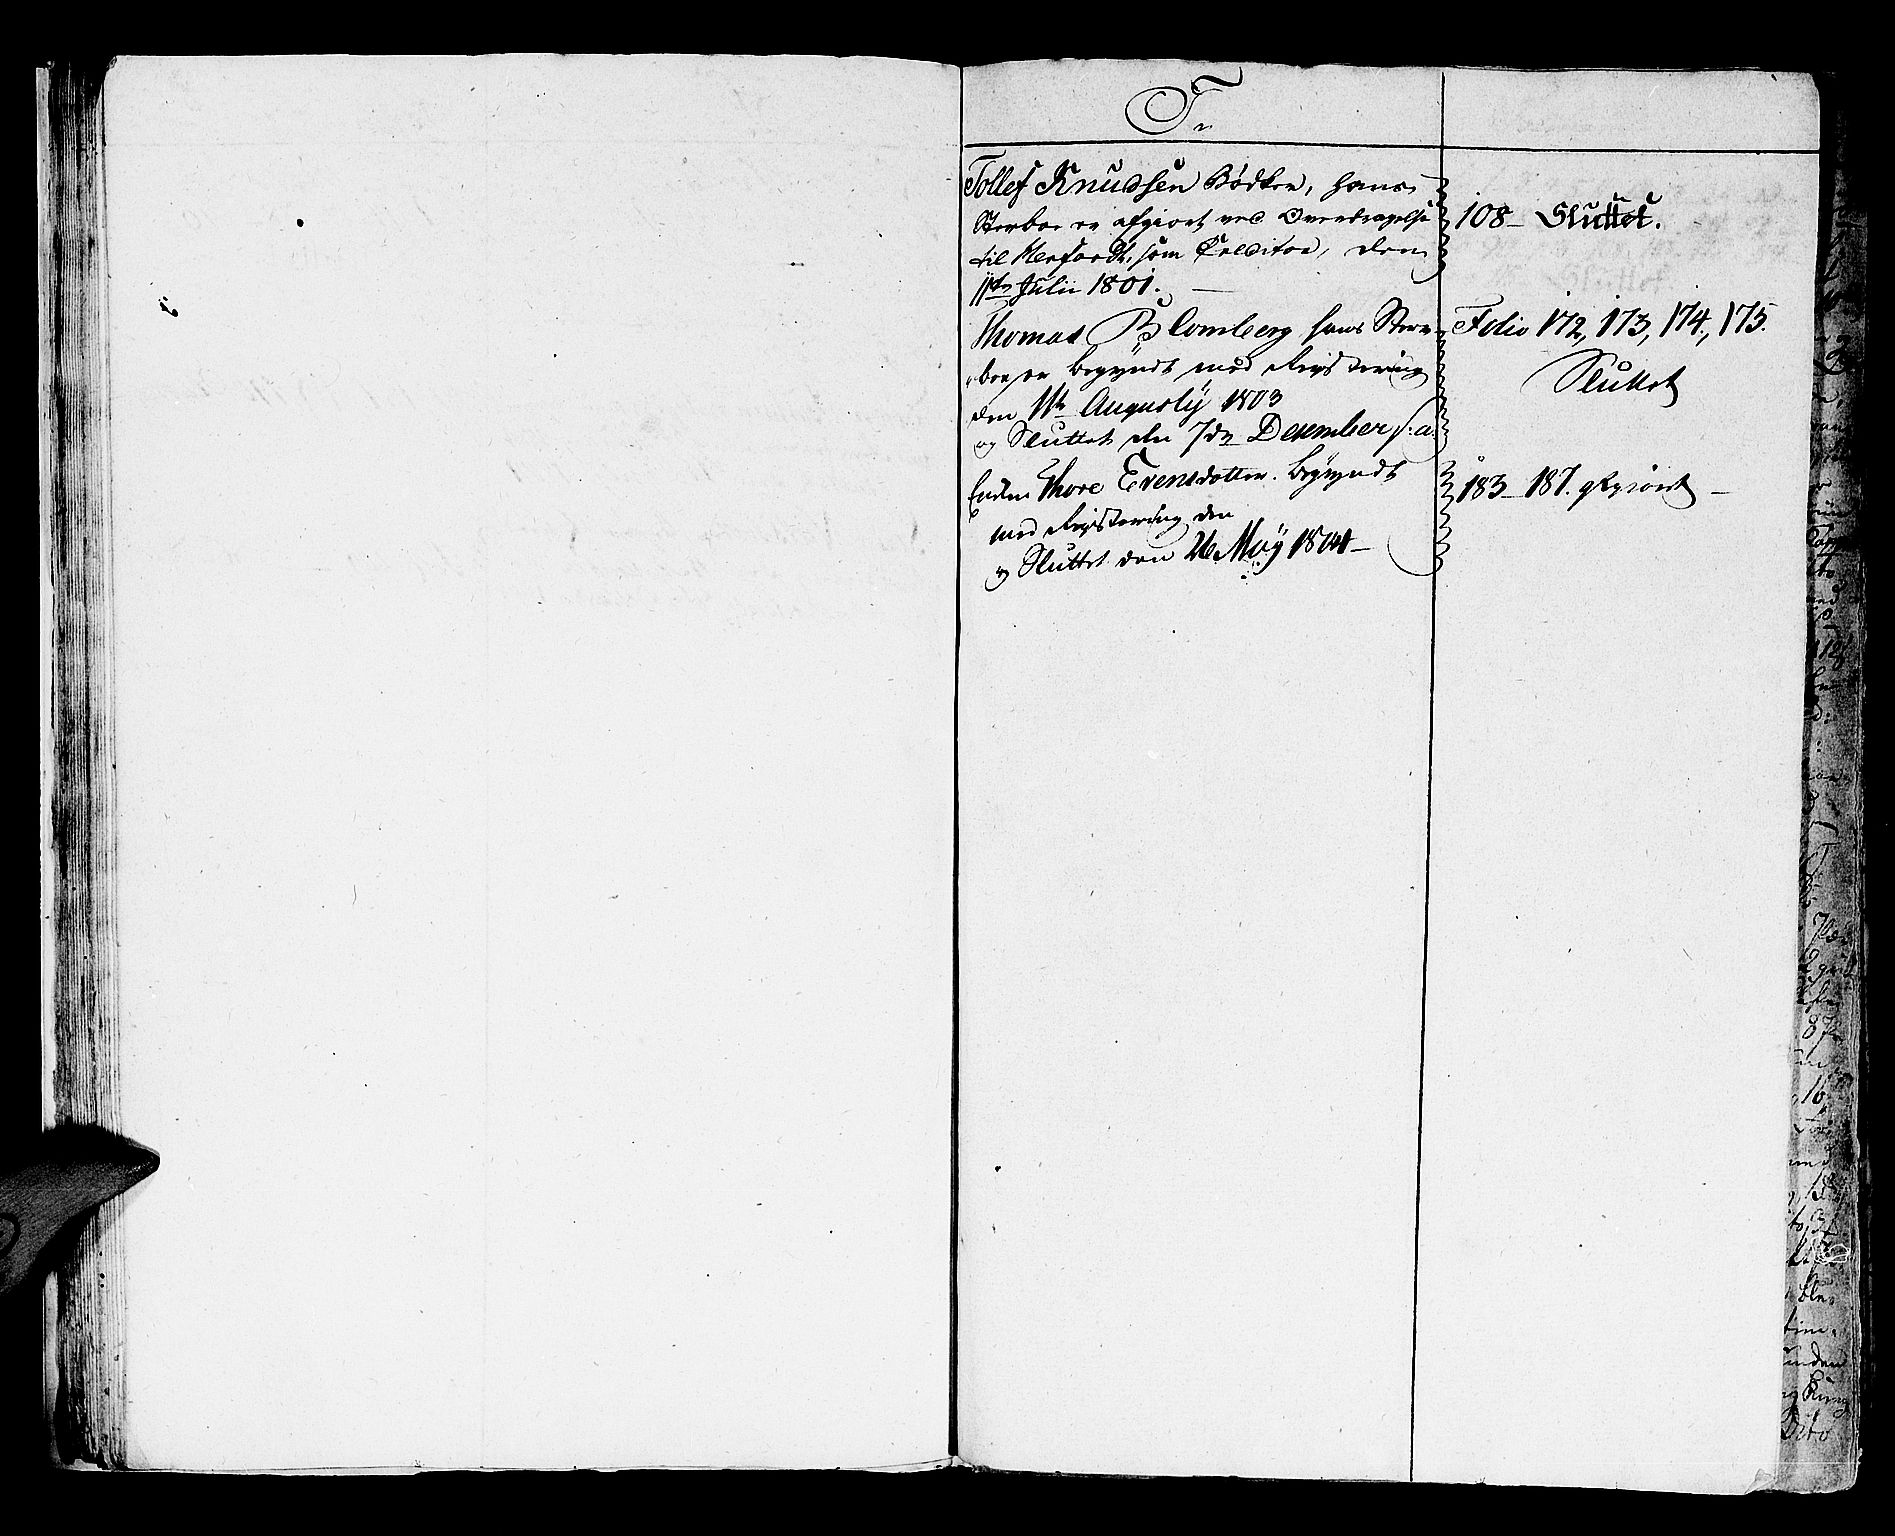 T.
Tollef Knudsen Bødker, hans
Sterboe er afgiort ved Overdragelse
til Herfordt, som Creditor, den
11te Julii 1801.
108 - Sluttet.
Thomas Blomberg hans Sterv-
boe er begyndt med Registering
den 11te Augustij 1803
og Sluttet den 7de Desember s: a:
Folio 172, 173, 174, 175.
Sluttet
Enken Thore Evensdatter. begyndt
med Registering den
og Sluttet den 26 Maÿ 1804 -
183 - 187.